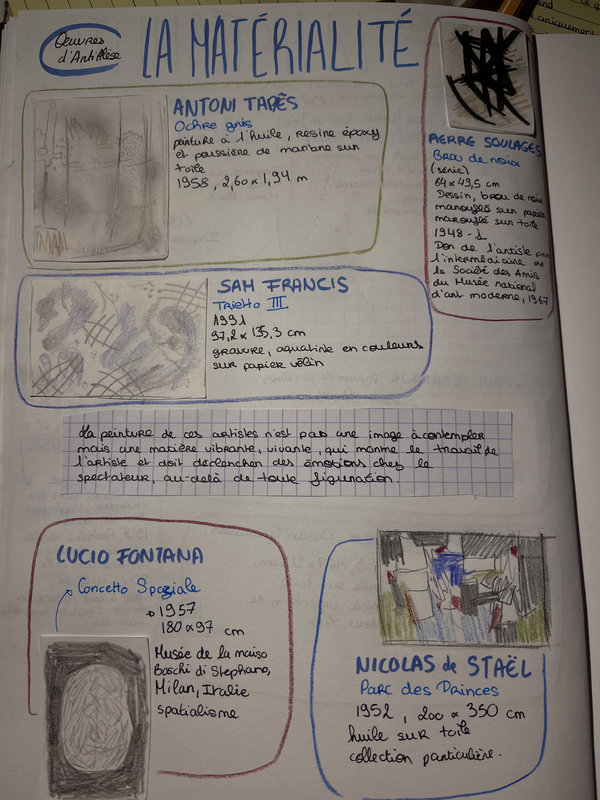 Œuvres
d'Antithèse
LA MATÉRIALITÉ
ANTONI TAPÈS
Ochre gris
peinture à l'huile, resine époxy
et poussière de marbre sur
toile
1958, 2,60 x 1,94 m
PIERRE SOULAGES
Brou de noix
(série)
64 x 49,5 cm
Dessin, brou de noix
marouflé sur papier
marouflé sur toile
1948-1
Don de l'artiste par
l'intermédiaire de
la Société des Amis
du Musée national
d'art moderne, 1967
SAM FRANCIS
Trietto III
1991
97,2 x 135,3 cm
gravure, aquatinte en couleurs
sur papier vélin
La peinture de ces artistes n'est pas une image à contempler
mais une matière vibrante, vivante, qui montre le travail de
l'artiste et doit déclencher des émotions chez le
spectateur, au-delà de toute figuration.
LUCIO FONTANA
Concetto Spaziale
1957
180 x 97 cm
Musée de la maiso
Boschi di Stephano,
Milan, Italie
spatialisme
NICOLAS de STAËL
Parc des Princes
1952, 200 x 350 cm
huile sur toile
collection particulière.